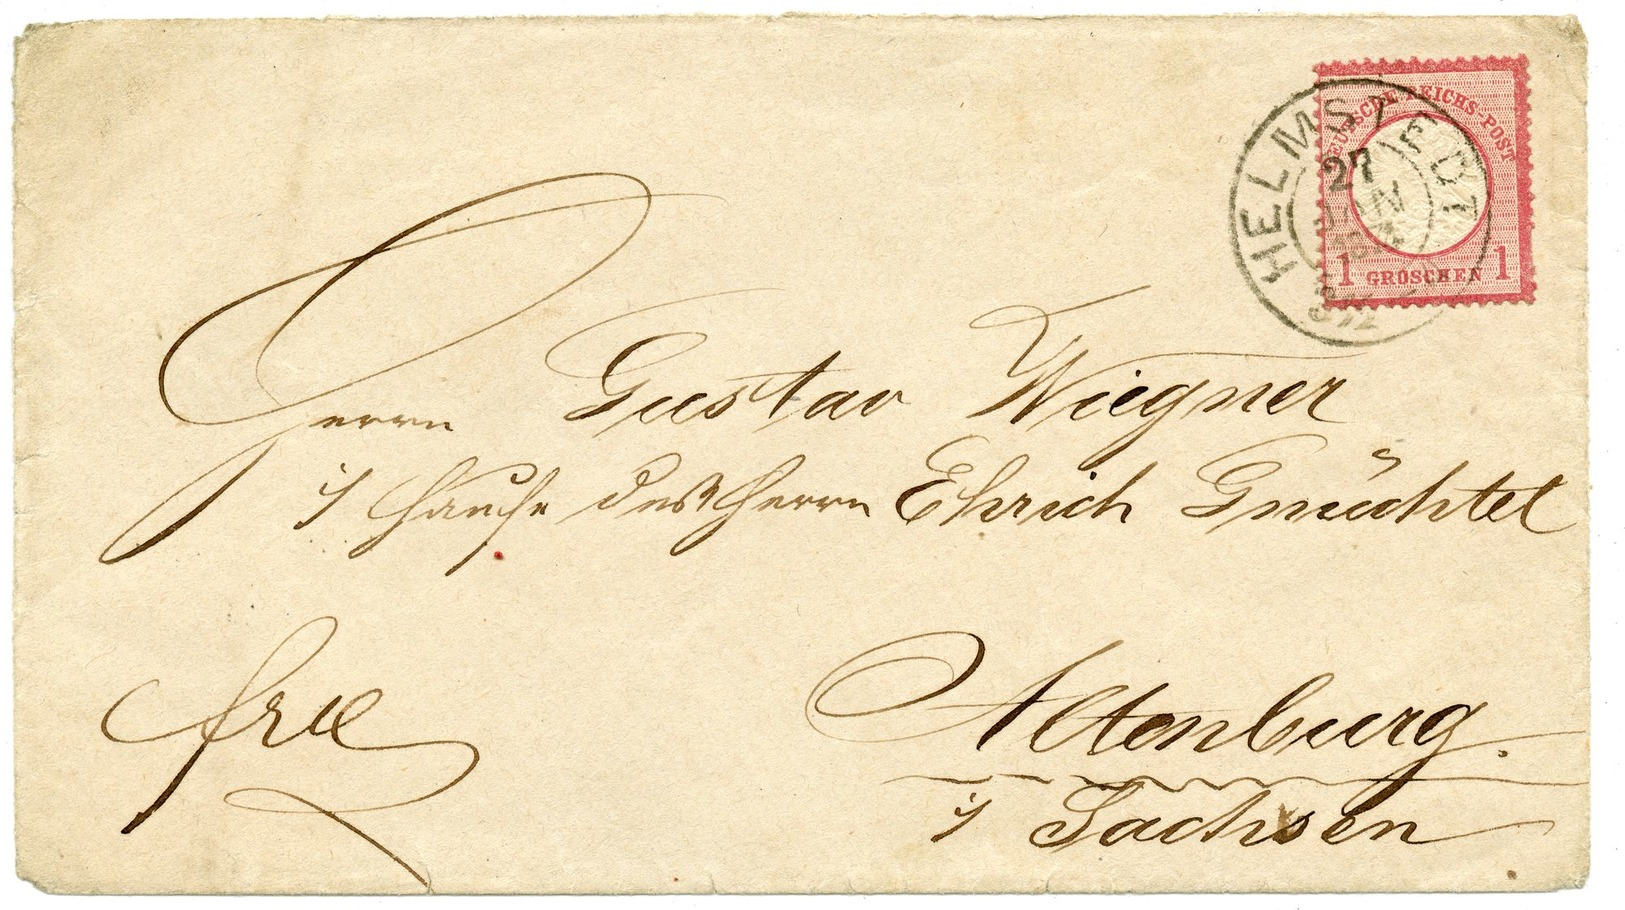 DEUTSCHE REICHS-POST
1 GROSCHEN 1
HELMSTEDT
27
JAN
Herrn Gustav Wiegner
i/ Hause des Herrn Ehrich Gnüchtel
fr
Altenburg.
i/ Sachsen